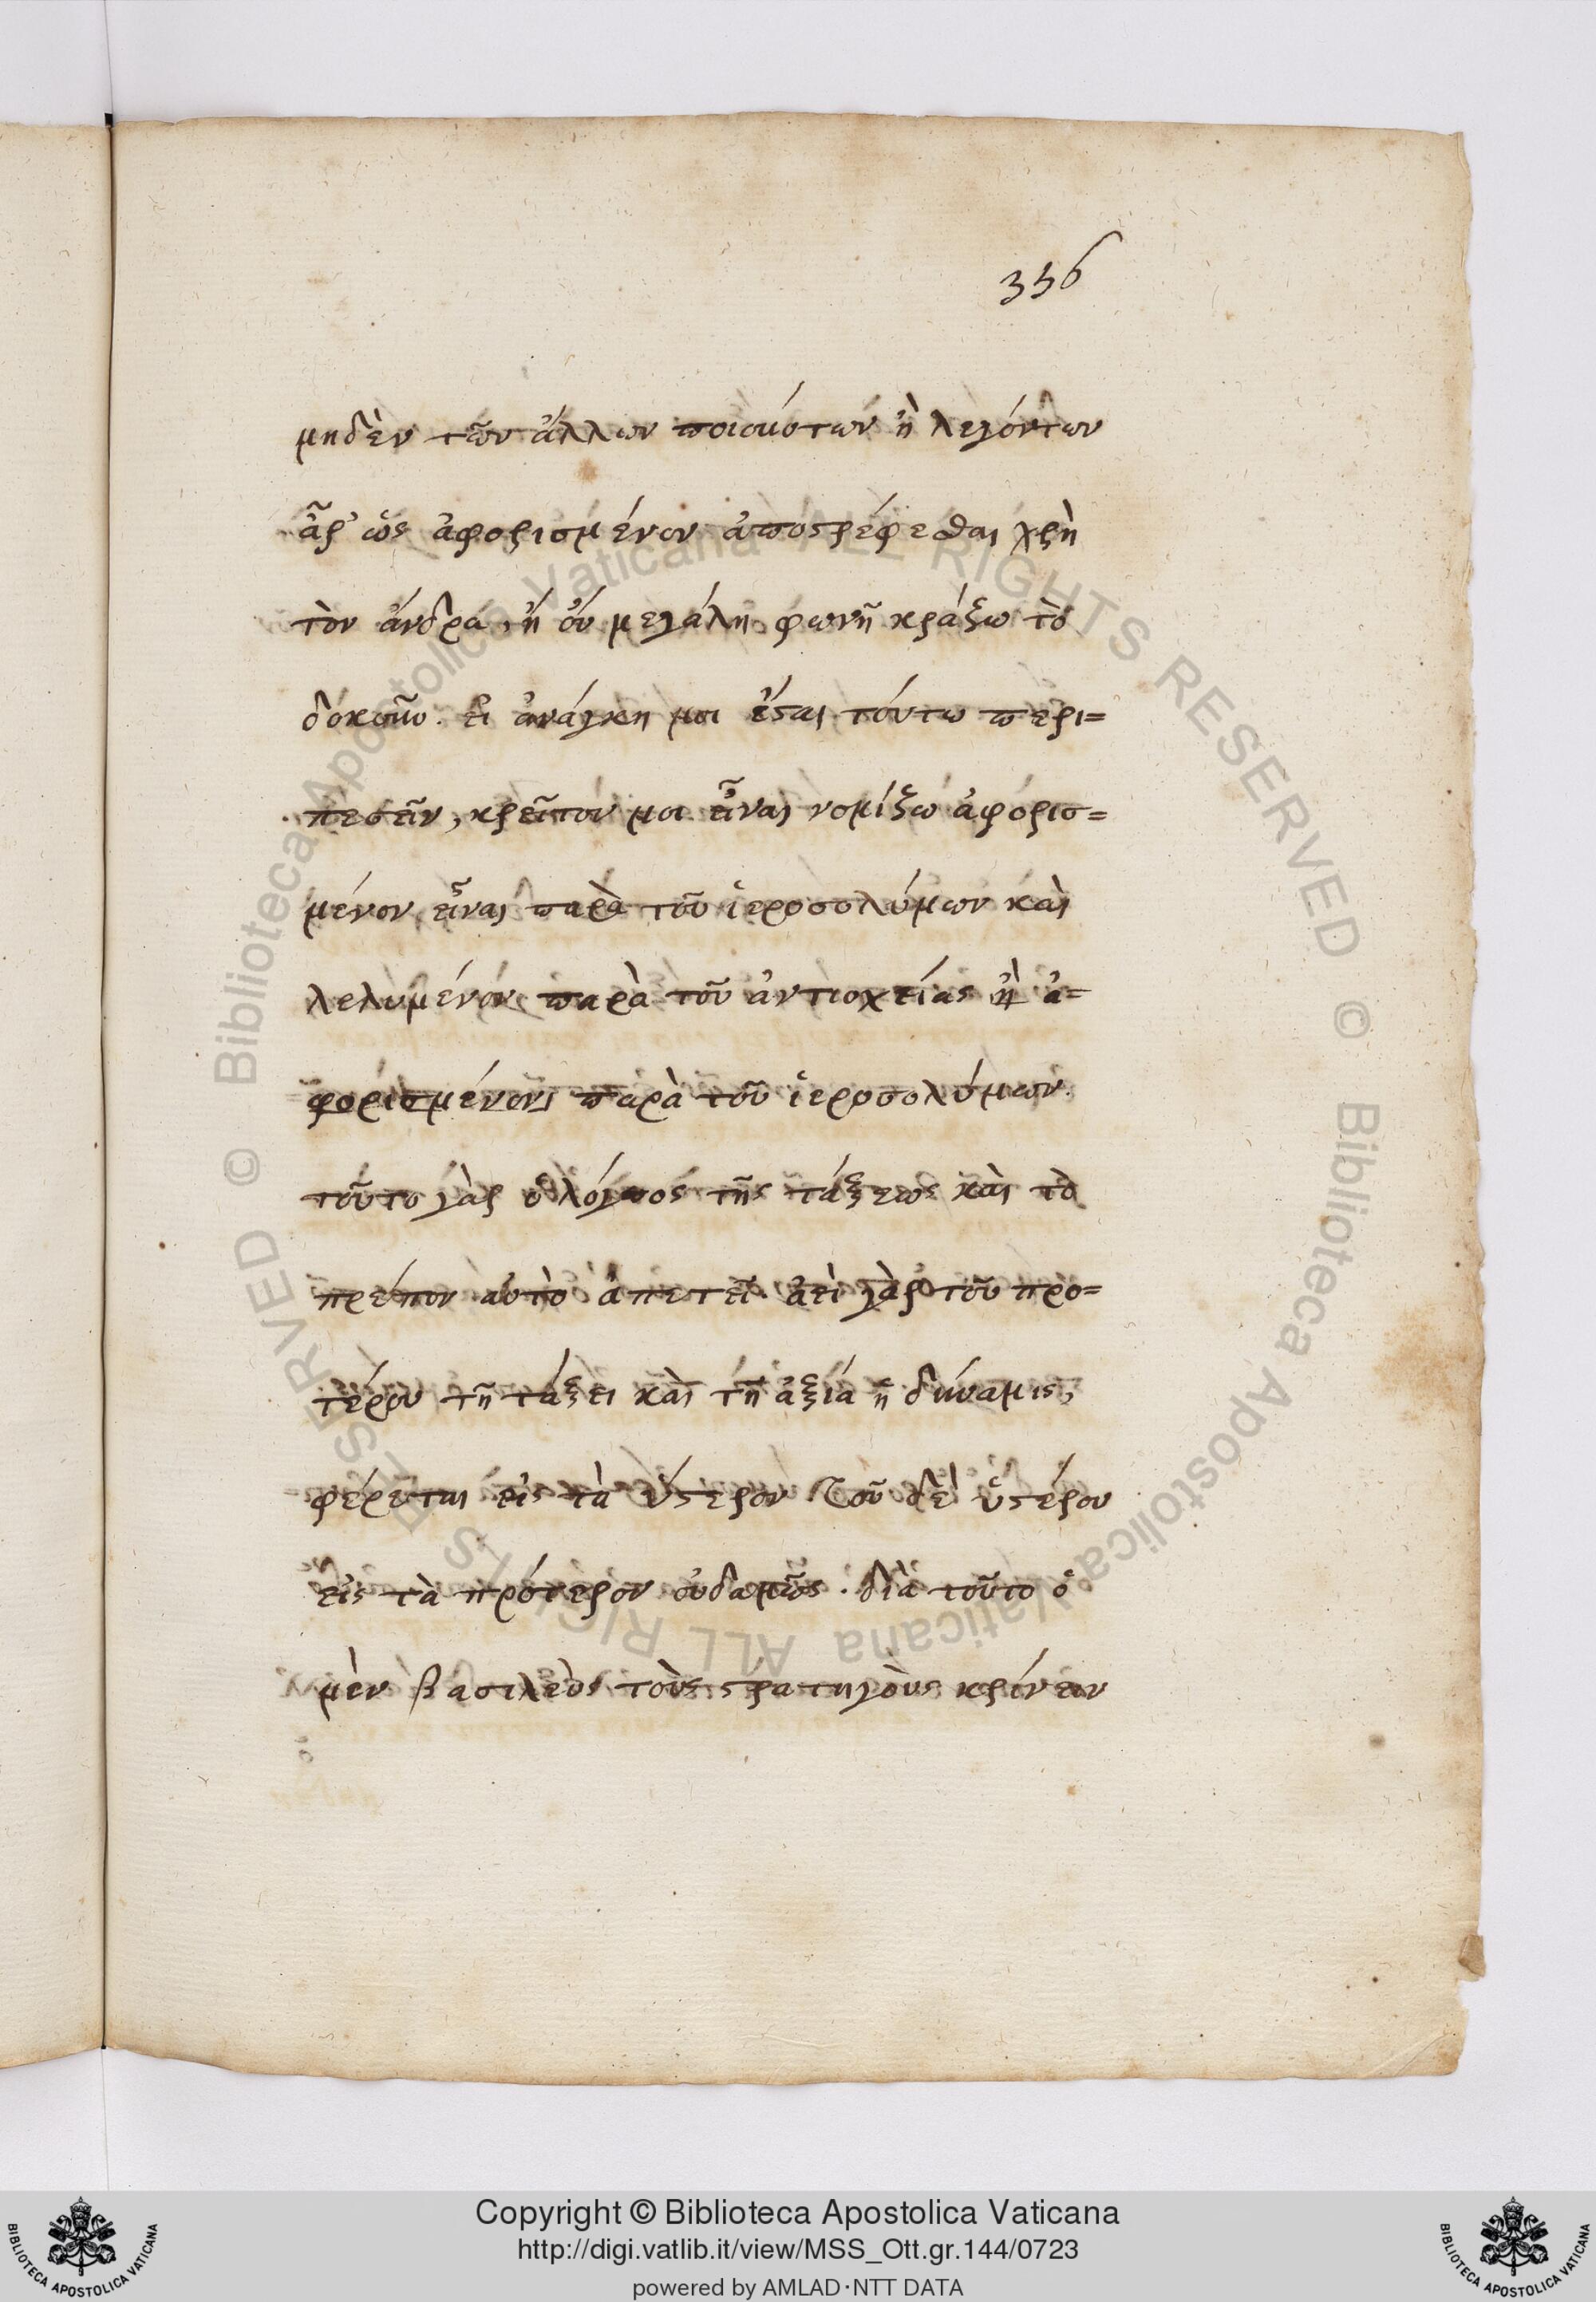 356
μηδὲν τῶν ἄλλων ποιούντων ἢ λεγόντων
ἆρ' ὡς ἀφορισμένον ἀποστρέφεσθαι χρὴ
τὸν ἄνδρα, ἢ οὐ μεγάλη φωνῆ κράξω τὸ
δοκοῦν. εἰ ἀνάγκη μοι ἔσται τούτω περι=
πεσεῖν, κρεῖττον μοι εἶναι νομίζω ἀφορισ=
μένον εἶναι παρὰ τοῦ ἱεροσολύμων καὶ
λελυμένον παρὰ τοῦ ἀντιοχείας ἢ ἀ=
φορισμένον παρὰ τοῦ ἱεροσολύμων.
τοῦτο γὰρ ὁ λόγος τῆς τάξεως καὶ τὸ
πρέπον αὐτὸ ἀπετεῖ. ἀεὶ γὰρ τοῦ προ=
τέρου τῆ τάξει καὶ τῆ ἀξία ἡ δύναμις,
φέρεται εἰς τὰ ὕστερον τοῦ δὲ ὑστέρου
εἰς τὰ πρότερον οὐδαμῶς. διὰ τοῦτο ὁ
μὲν βασιλεὺς τοὺς στρατηγοὺς κρίνειν
© Biblioteca Apostolica Vaticana ALL RIGHTS RESERVED © Biblioteca Apostolica Vaticana ALL RIGHTS RESERVED
Copyright © Biblioteca Apostolica Vaticana
http://digi.vatlib.it/view/MSS_Ott.gr.144/0723
powered by AMLAD·NTT DATA
BIBLIOTECA APOSTOLICA VATICANA
BIBLIOTECA APOSTOLICA VATICANA